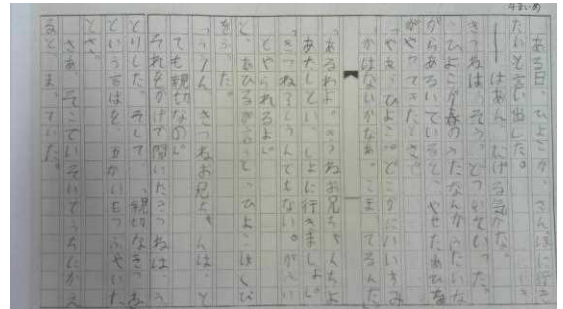 4まいめ
ある日、ひよこが、さんぽに行き
たいと言い出した。
――はあん、にげる気かな。
きつねは、そうっとついていった。
ひよこが春のうたなんかうたいな
がらあるいていると、やせたあひる
がやってきたとさ。
「やあ、ひよこ。どこかにいいすみ
かはないかなあ。こまってるんだ
「あるわよ。きつねお兄ちゃんちよ
あたしといっしょに行きましょ。」
「きつね?とんでもない。がぶり
とやられるよ。」
と、あひるが言うと、ひよこはくび
をふった。
「ううん。きつねお兄ちゃんは、と
ても親切なの。」
それをかげで聞いたきつねは、う
とりした。そして「親切なきつね」
ということばを、五かいもつぶやいた
とさ。
さあ、そこでいそいでうちにかえ
ると、まっていた。